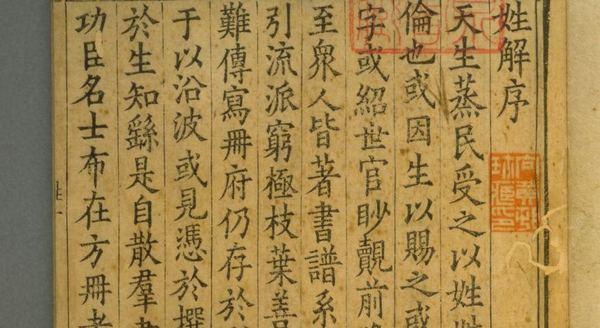 姓解序
天生蒸民受之以姓
倫也或因生以賜之或
字或紹世官眇覿前
至衆人皆著書譜系
引流派窮極枝葉善
難傳寫冊府仍存於
于以沿波或見憑於撰
於生知繇是自散羣
功臣名士布在方冊